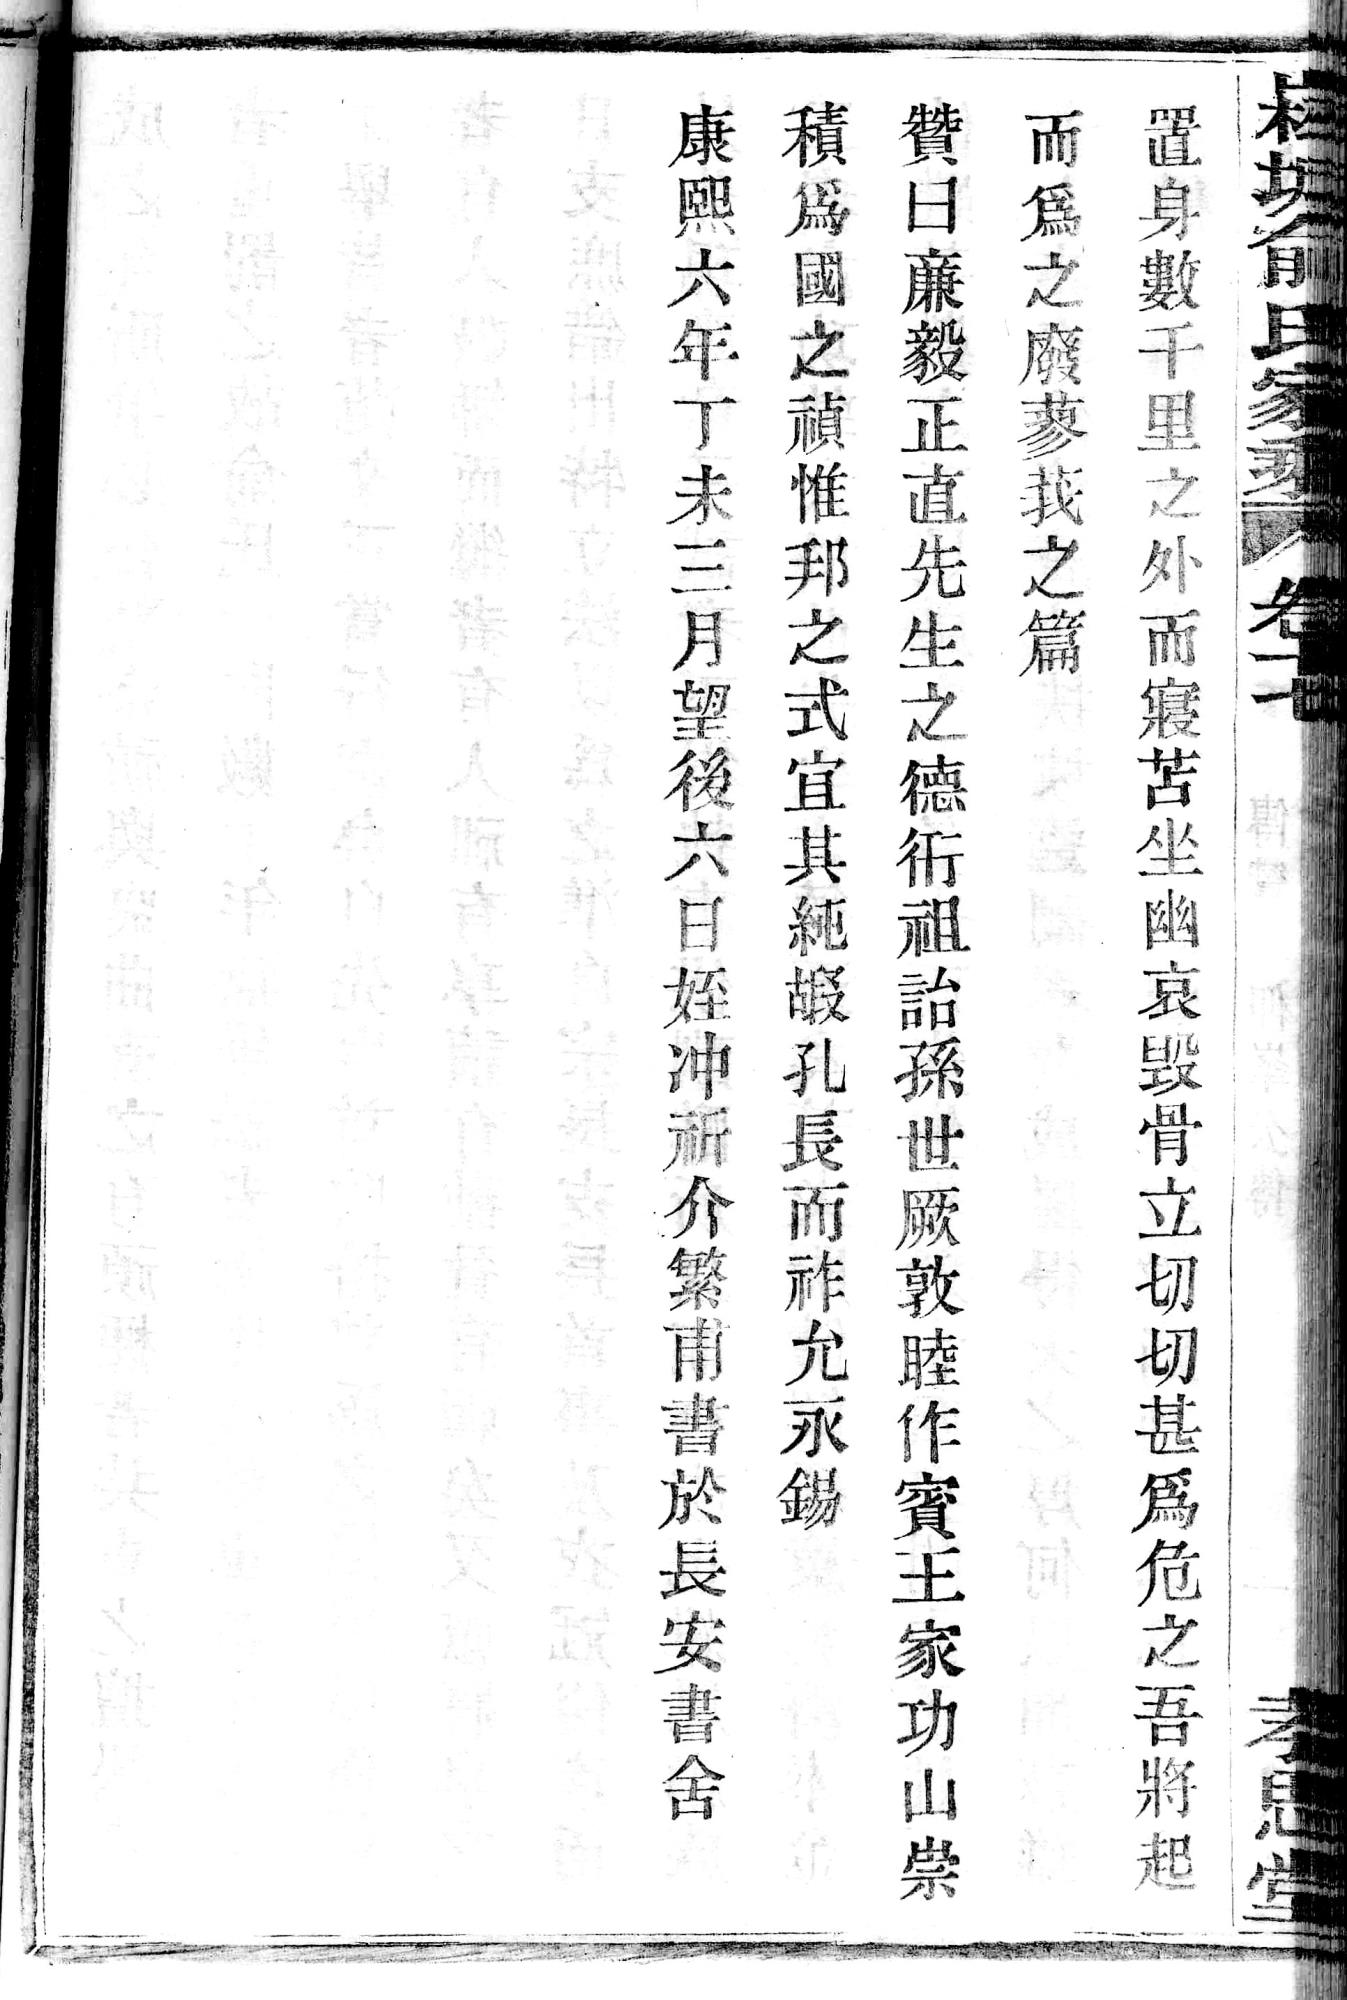 俞氏家乘 卷十七 孝思堂
置身數千里之外而寢苫坐幽哀毀骨立切切甚爲危之吾將起
而爲之廢蓼莪之篇
贊曰廉毅正直先生之德衎祖詒孫世厥敦睦作賓王家功山崇
積爲國之禎惟邦之式宜其純嘏孔長而祚允永錫
康熙六年丁未三月望後六日姪冲祈介繁甫書於長安書舍